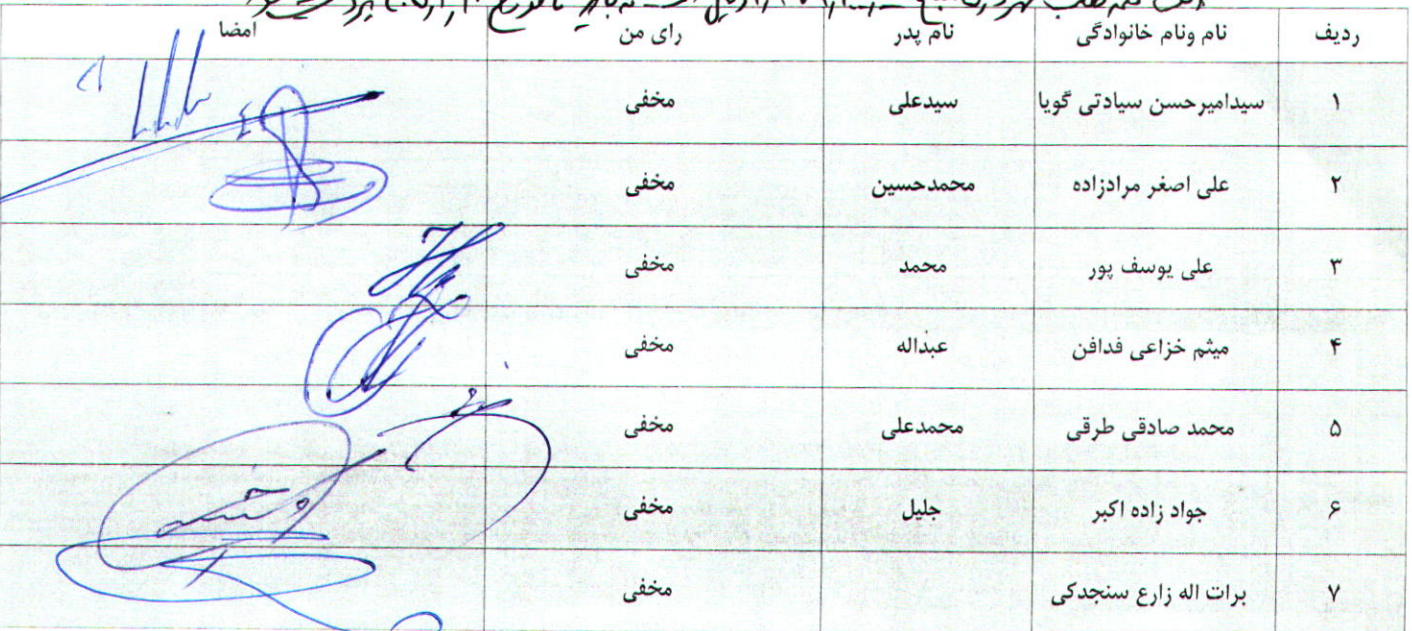 ردیف نام ونام خانوادگی نام پدر رای من امضا
۱ سیدامیرحسن سیادتی گویا سیدعلی مخفی
۲ علی اصغر مرادزاده محمدحسین مخفی
۳ علی یوسف پور محمد مخفی
۴ میثم خزاعی فدافن عبداله مخفی
۵ محمد صادقی طرقی محمدعلی مخفی
۶ جواد زاده اکبر جلیل مخفی
۷ برات اله زارع سنجدکی مخفی